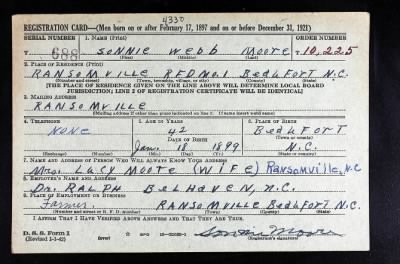 4330
REGISTRATION CARD—(Men born on or after February 17, 1897 and on or before December 31, 1921)
SERIAL NUMBER 1. NAME (Print) ORDER NUMBER
T 688 SONNIE WEBB MOORE T 10,225
(First) (Middle) (Last)
2. PLACE OF RESIDENCE (Print)
RANSOMVILLE RFD No. 1 BEAUFORT N.C.
(Number and street) (Town, township, village, or city) (County) (State)
[THE PLACE OF RESIDENCE GIVEN ON THE LINE ABOVE WILL DETERMINE LOCAL BOARD
JURISDICTION; LINE 2 OF REGISTRATION CERTIFICATE WILL BE IDENTICAL]
3. MAILING ADDRESS
RANSOMVILLE
(Mailing address if other than place indicated on line 2. If same insert word same)
4. TELEPHONE 5. AGE IN YEARS 6. PLACE OF BIRTH
NONE 42 BEAUFORT
DATE OF BIRTH (Town or county)
Jan. 18 1899 N.C.
(Exchange) (Number) (Mo.) (Day) (Yr.) (State or country)
7. NAME AND ADDRESS OF PERSON WHO WILL ALWAYS KNOW YOUR ADDRESS
Mrs. LUCY MOORE (WIFE) Ransomville, N.C
8. EMPLOYER'S NAME AND ADDRESS
Dr. RALPH BELHAVEN, N.C.
9. PLACE OF EMPLOYMENT OR BUSINESS
Farmer RANSOMVILLE BEAUFORT N.C.
(Number and street or R. F. D. number) (Town) (County) (State)
I AFFIRM THAT I HAVE VERIFIED ABOVE ANSWERS AND THAT THEY ARE TRUE.
D. S. S. Form 1 Sonnie Moore
(Revised 1-1-42) (Registrant's signature)